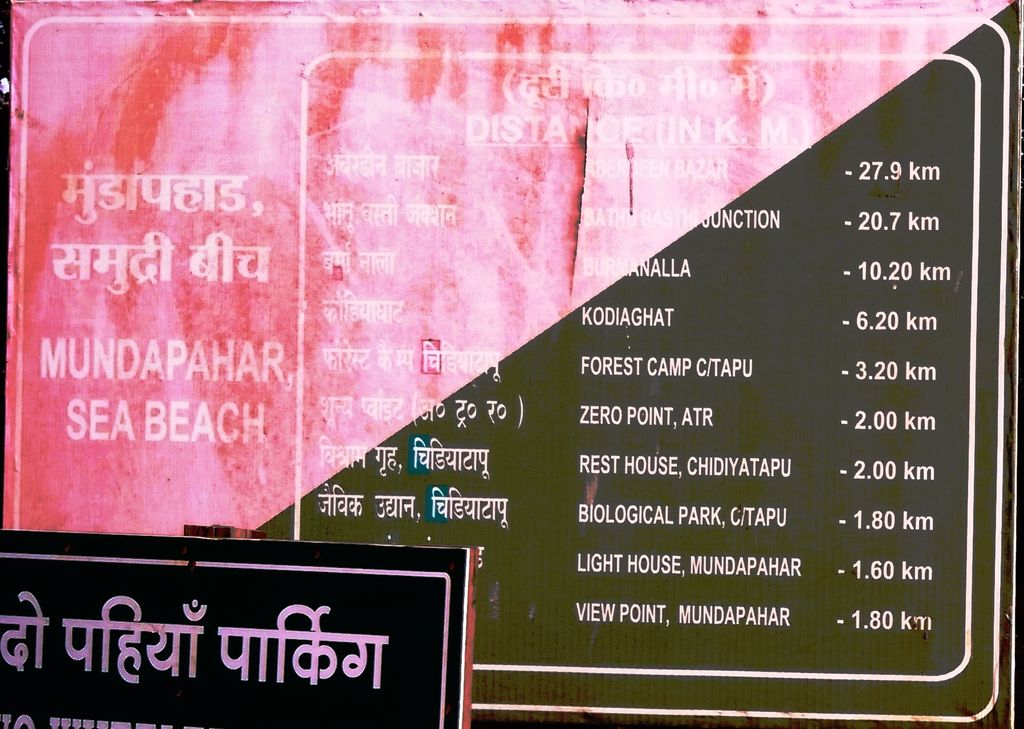 (दूरी कि० मी० में)
DISTANCE (IN K. M.)
मुंडापहाड,
समुद्री बीच
MUNDAPAHAR,
SEA BEACH
अबरडीन बाजार ABERDEEN BAZAR - 27.9 km
भातू बस्ती जंक्शन BATHU BASTI JUNCTION - 20.7 km
बर्मा नाला BURMANALLA - 10.20 km
कोडियाघाट KODIAGHAT - 6.20 km
फॉरेस्ट कैम्प चिडियाटापू FOREST CAMP C/TAPU - 3.20 km
शून्य प्वांइट (अ० ट्र० र० ) ZERO POINT, ATR - 2.00 km
विश्राम गृह, चिडियाटापू REST HOUSE, CHIDIYATAPU - 2.00 km
जैविक उद्यान, चिडियाटापू BIOLOGICAL PARK, C/TAPU - 1.80 km
LIGHT HOUSE, MUNDAPAHAR - 1.60 km
VIEW POINT, MUNDAPAHAR - 1.80 km
दो पहियाँ पार्किंग